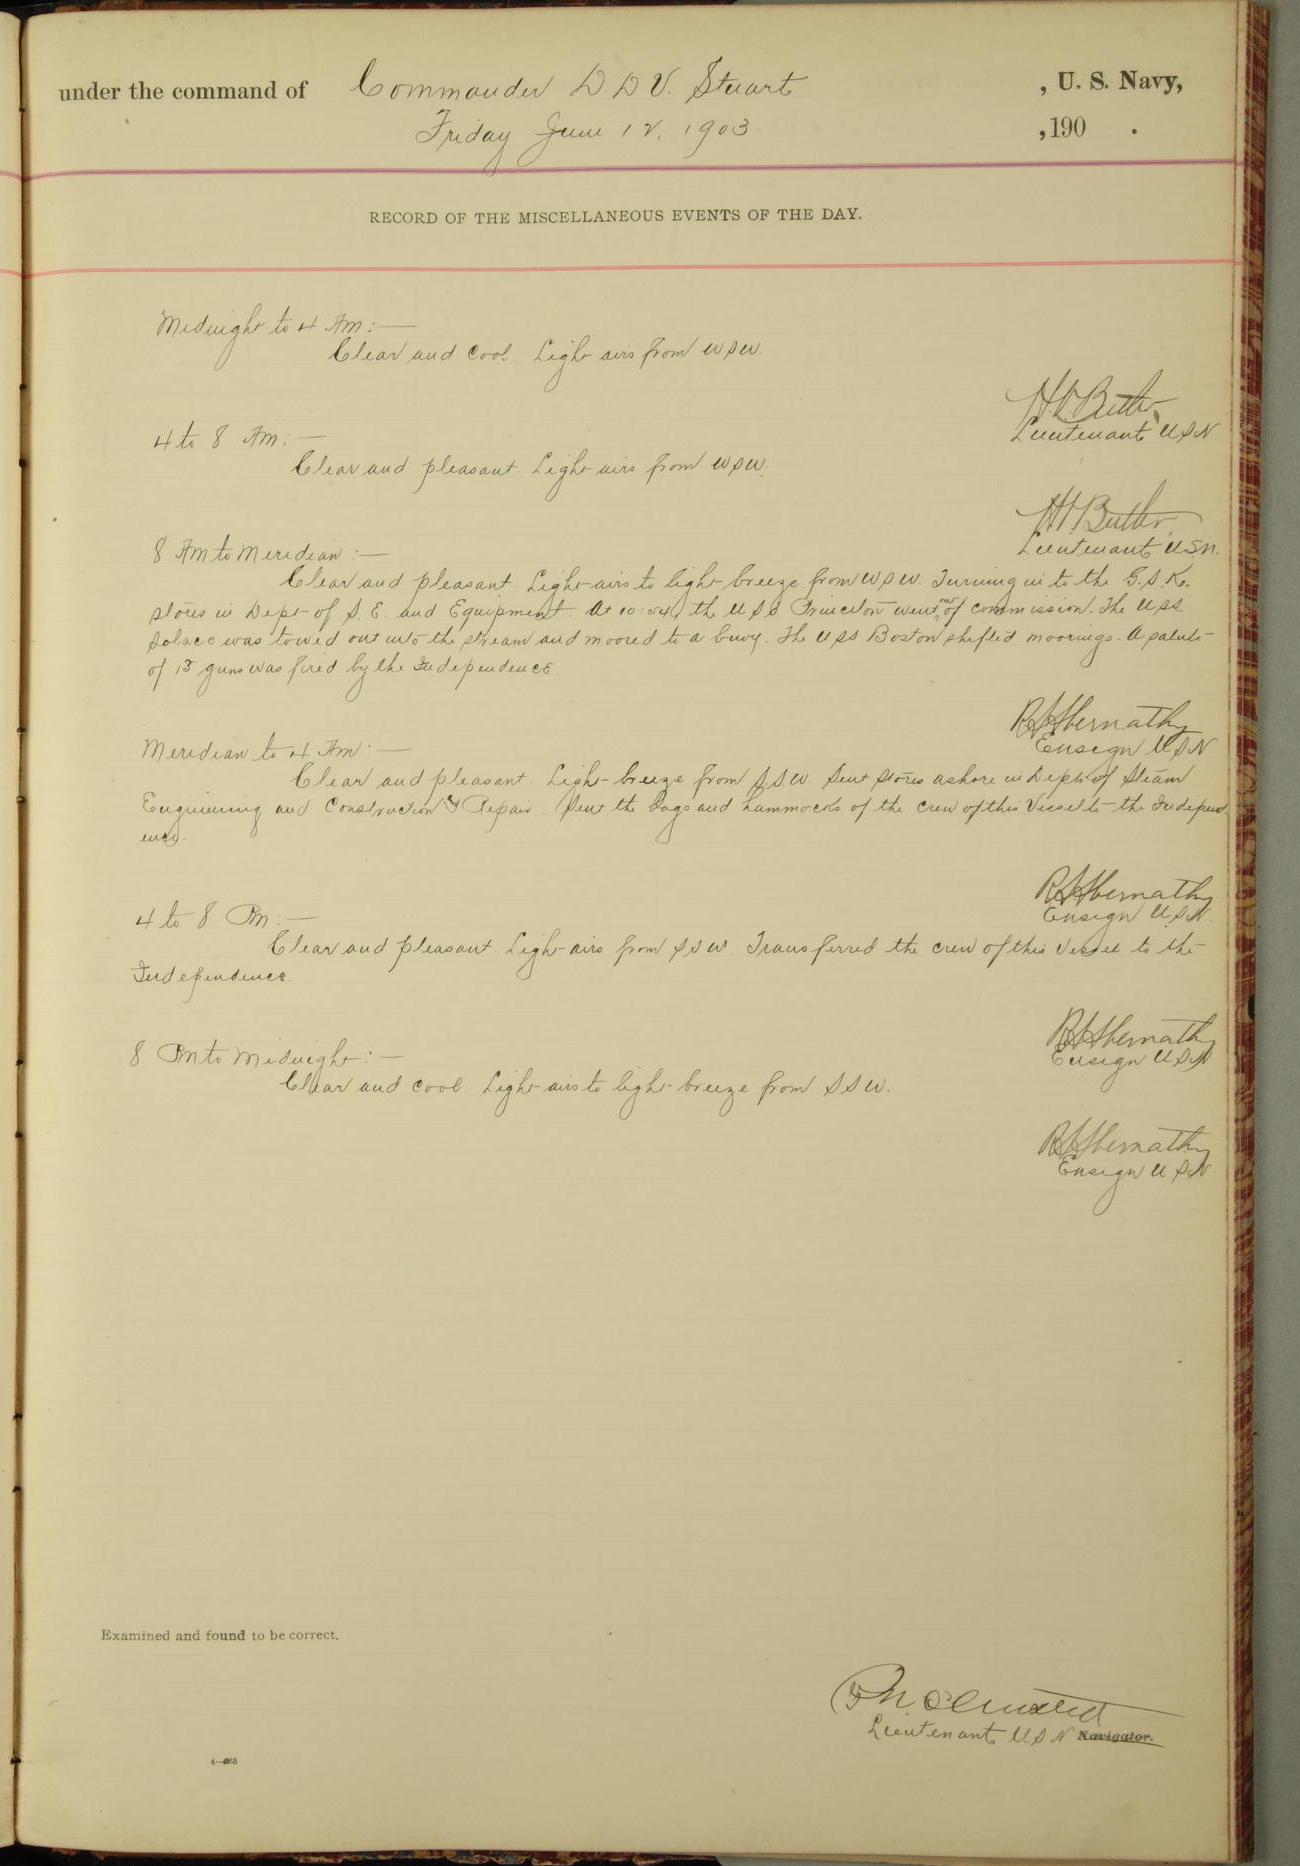 under the command of Commander D D V. Stuart , U. S. Navy,
Friday June 12, 1903 ,190 .
RECORD OF THE MISCELLANEOUS EVENTS OF THE DAY.
Midnight to 4 Am:—
Clear and cool. Light airs from WSW.
Butler
Lieutenant USN
4 to 8 Am:—
Clear and pleasant. Light airs from WSW.
Butler
Lieutenant U.S.N.
8 Am to Meridian:—
Clear and pleasant. Light airs to light breeze from WSW. Turning in to the G.S.K.
stores in Dept of S. E. and Equipment. At 10:54, the U S S Princeton went out of commission. The USS
Solace was towed out into the stream and moored to a buoy. The USS Boston shifted moorings. A salute
of guns was fired by the Independence
Abernathy
Ensign USN
Meridian to 4 Am:—
Clear and pleasant. Light breeze from S.S.W. Sent stores ashore in Dept of Steam
Engineering and Construction & Repair. Sent the bags and hammocks of the crew of this Vessel to the Independ-
ence.
Abernathy
Ensign USN
4 to 8 Pm:—
Clear and pleasant. Light airs from SSW. Transferred the crew of this Vessel to the
Independence.
Abernathy
Ensign USN
8 Pm to Midnight:—
Clear and cool. Light airs to light breeze from SSW.
Abernathy
Ensign USN
Examined and found to be correct.
Olmsted
Lieutenant USN Navigator.